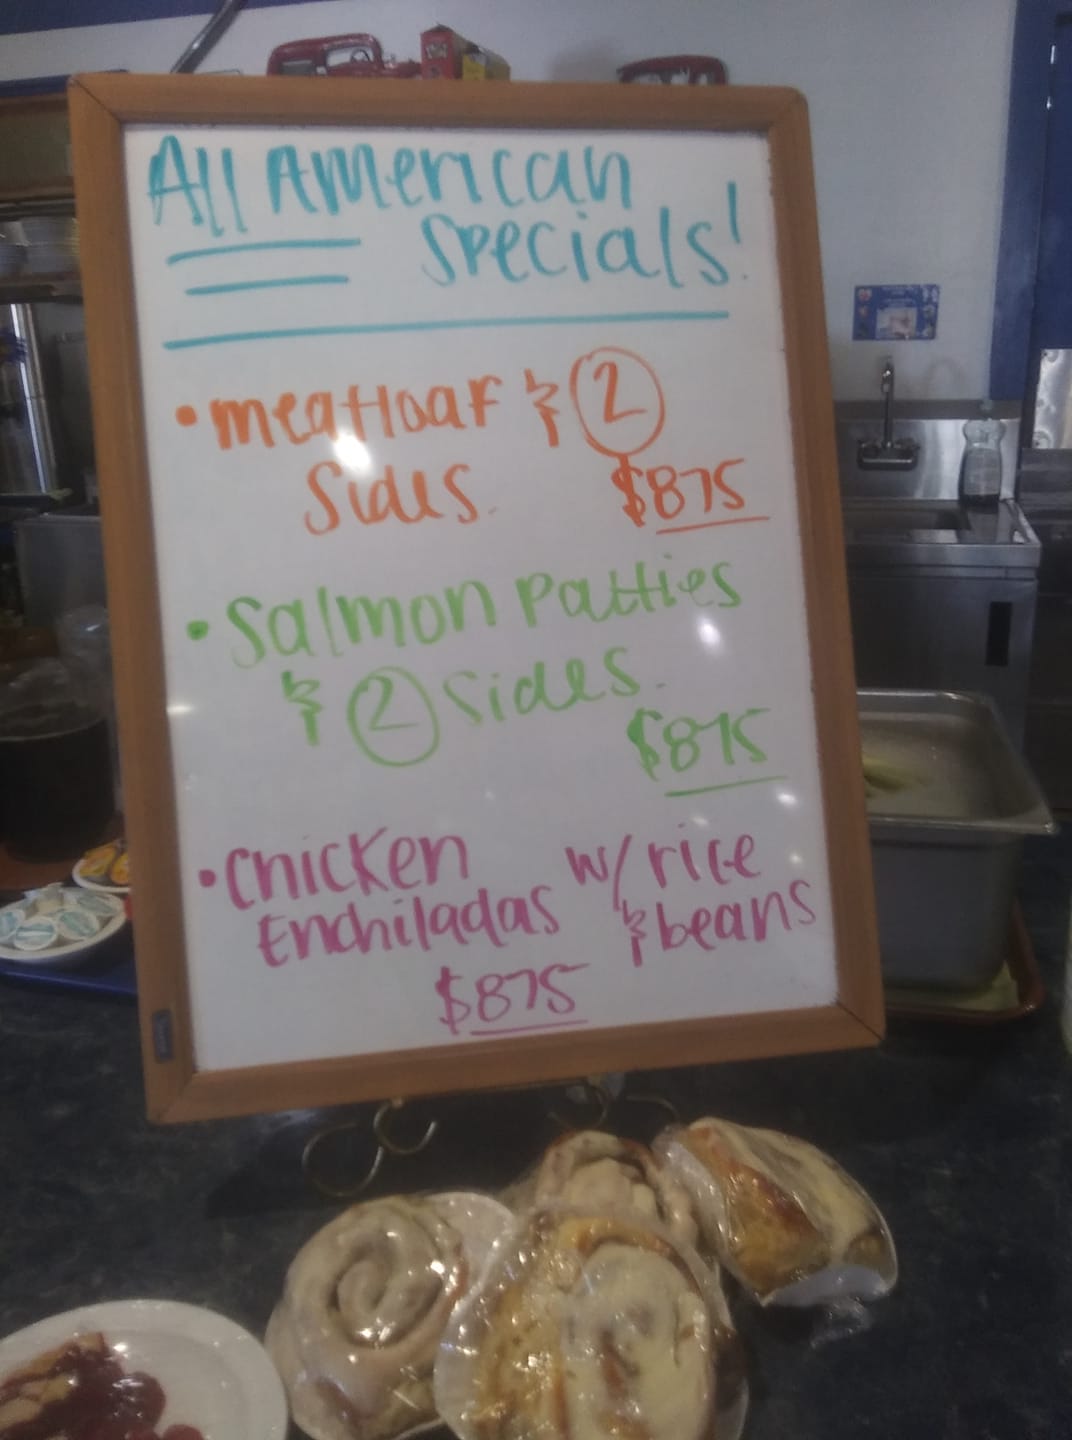 All American
Specials!
• Meatloaf & 2
Sides. $875
• Salmon Patties
& 2 Sides.
$875
• Chicken w/ rice
Enchiladas & beans
$875